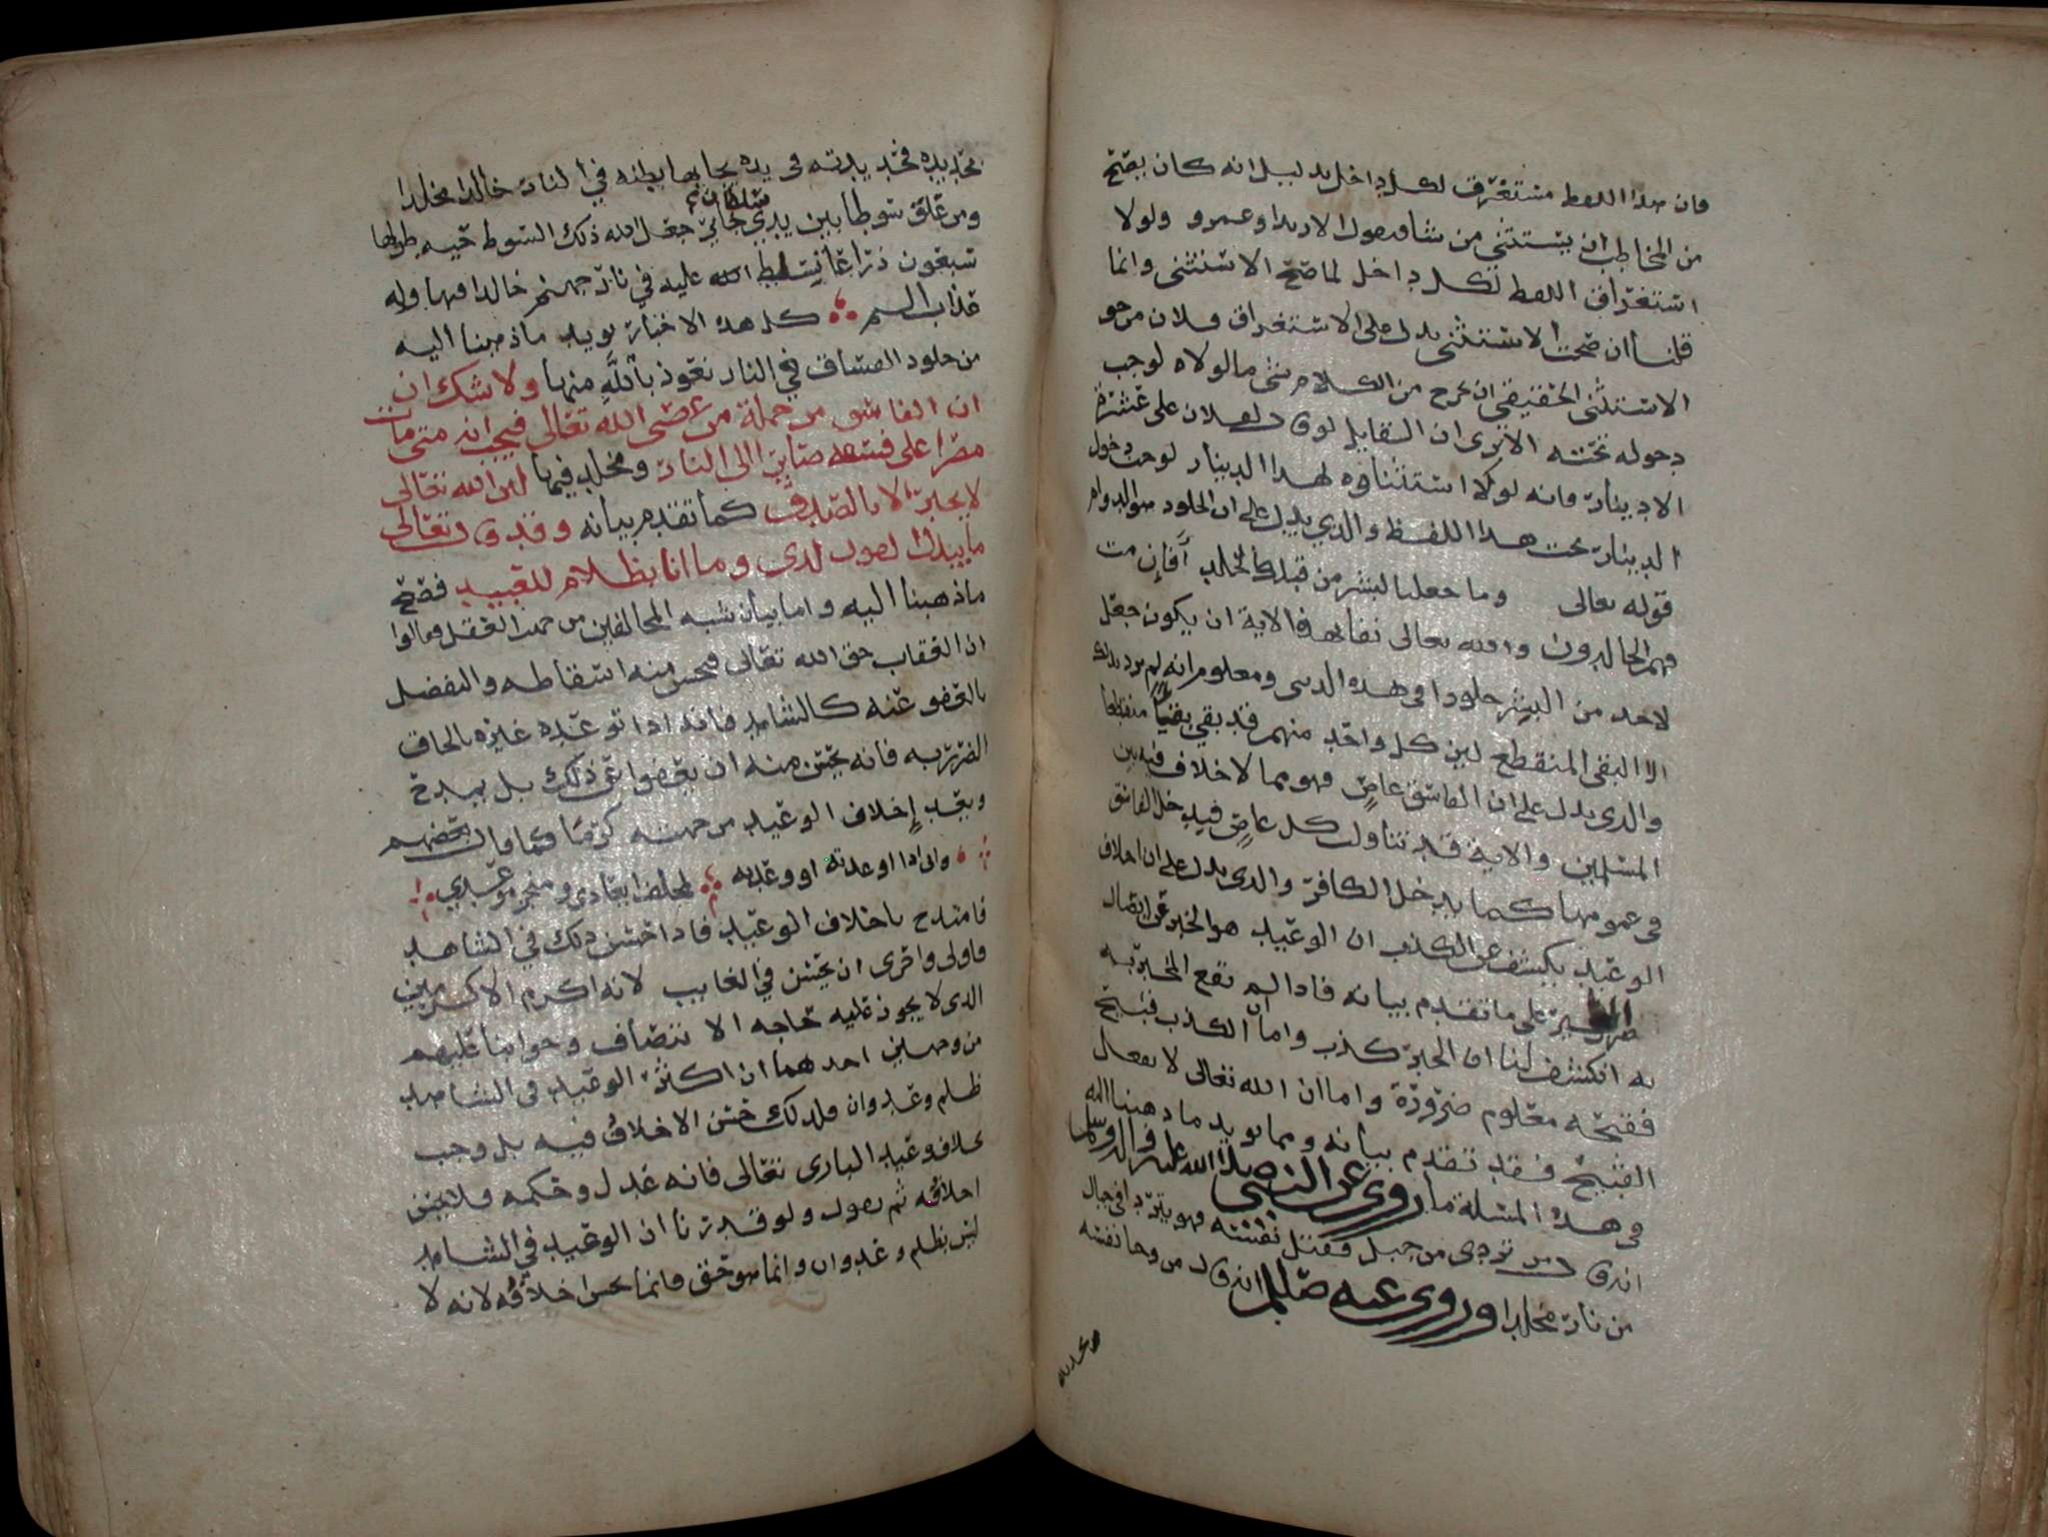 فان هذا اللفظ مستغرق لكل داخل بدليل انه كان يصح
من المخاطب ان يستثني من شا فيقول الا زيدا وعمرو ولولا
استغراق اللفظ لكل داخل لما صح الاستثنى وانما
قلنا ان صحت الاستثنى يدل على الاستغراق فلان من حق
الاستثنى الحقيقي ان يخرج من الكلام شي ما لولاه لوجب
دخوله تحته الا ترى ان القايل لو قال لفلان علي عشرة
الا دينار فانه لولا استثناؤه لهذا الدينار لوجب دخول
الدينار تحت هذا اللفظ والذي يدل على ان الخلود هو الدوام
قوله تعالى وما جعلنا لبشر من قبلك الخلد أفإن مت
فهم الخالدون والله تعالى نفا بهذه الاية ان يكون جعل
لاحد من البشر خلودا في هذه الدنيا ومعلوم انه لم يرد بذلك
الا البقى المنقطع لان كل واحد منهم قد بقي بقيا منقطعا
والذي يدل على ان الفاسق عاصٍ فهو مما لا خلاف فيه بين
المسلمين والاية قد تناولت كل عاصٍ فيدخل الفاسق
في عمومها كما يدخل الكافر والذي يدل على ان اخلاف
الوعيد يكشف عن الكذب ان الوعيد هو الخبر عن ايصال
الضرر على ما تقدم بيانه فاذا لم يقع المخبر به
به انكشف لنا ان الخبر كذب واما ان الكذب قبيح
فقبحه معلوم ضرورة واما ان الله تعالى لا يفعل
القبيح فقد تقدم بيانه ومما يويد ما ذهبنا اليه
في هذه المسئلة ما روي عن النبي صلى الله عليه واله وسلم
انه قال من تردى من جبل فقتل نفسه فهو يتردا في جبال
من نار مخلدا وروي عنه صلعم انه قال من وجا نفسه
بحديده
بحديده فحديدته في يده يجا بها بطنه في النار خالدا مخلدا
ومن علق سوطا بين يدي سلطان جائر جعل الله ذلك السوط حيه طولها
سبعون ذراعا تسلط الله عليه في نار جهنم خالدا فيها وله
عذاب اليم كل هذه الاخبار يويد ما ذهبنا اليه
من خلود الفساق في النار نعوذ بالله منها ولا شك ان
ان الفاسق من جملة من عصى الله تعالى فيجب انه متى مات
مصرا على فسقه صاير الى النار ومخلد فيها لان الله تعالى
لا يخبر الا بالصدق كما تقدم بيانه وقد قال تعالى
ما يبدل القول لدي وما انا بظلام للعبيد فصح
ما ذهبنا اليه واما بيان شبه المخالفين من جهت العقل فقالوا
ان العقاب حق الله تعالى فيحسن منه اسقاطه والتفضل
بالعفو عنه كالشاهد فانه اذا توعده غيره بالحاق
الضرر به فانه يحسن منه ان يعفوا عن ذلك بل يمدح
ويعد إخلاف الوعيد من جهته كرما كما قال بعضهم
واني اذا اوعدته او وعدته لمخلف ايعادي ومنجز موعدي
فامتدح باخلاف الوعيد فاذا حسن ذلك في الشاهد
فاولى واحرى ان يحسن في الغايب لانه اكرم الاكرمين
الذي لا يجوز عليه حاجه الا تنضاف وجوابنا عليهم
من وجهين احدهما ان اكثر الوعيد في الشاهد
ظلم وعدوان فلذلك حسن الاخلاف فيه بل وجب
بخلاف وعيد الباري تعالى فانه عدل وحكمه فلا يحسن
اخلافه ثم يقول ولو قدرنا ان الوعيد في الشاهد
ليس بظلم وعدوان وانما هو حق فانما يحسن اخلافه لانه لا